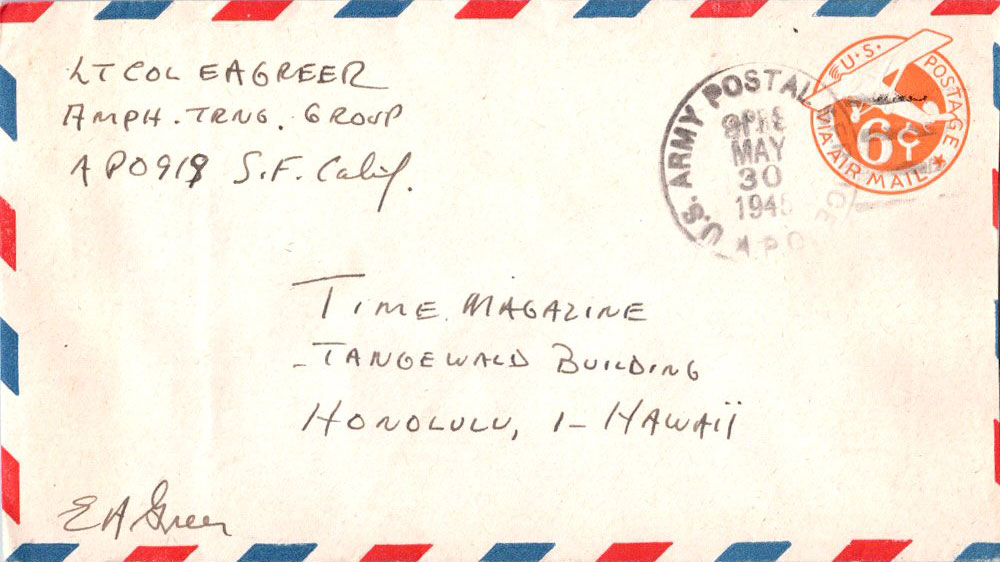 LT COL E A GREER
AMPH. TRNG. GROUP
APO 919 S.F. Calif.
U.S. ARMY POSTAL
MAY
30
1945
A.P.O.
U.S. POSTAGE
6¢
VIA AIR MAIL
TIME MAGAZINE
TANGEWALD BUILDING
HONOLULU, 1 - HAWAII
E A Greer